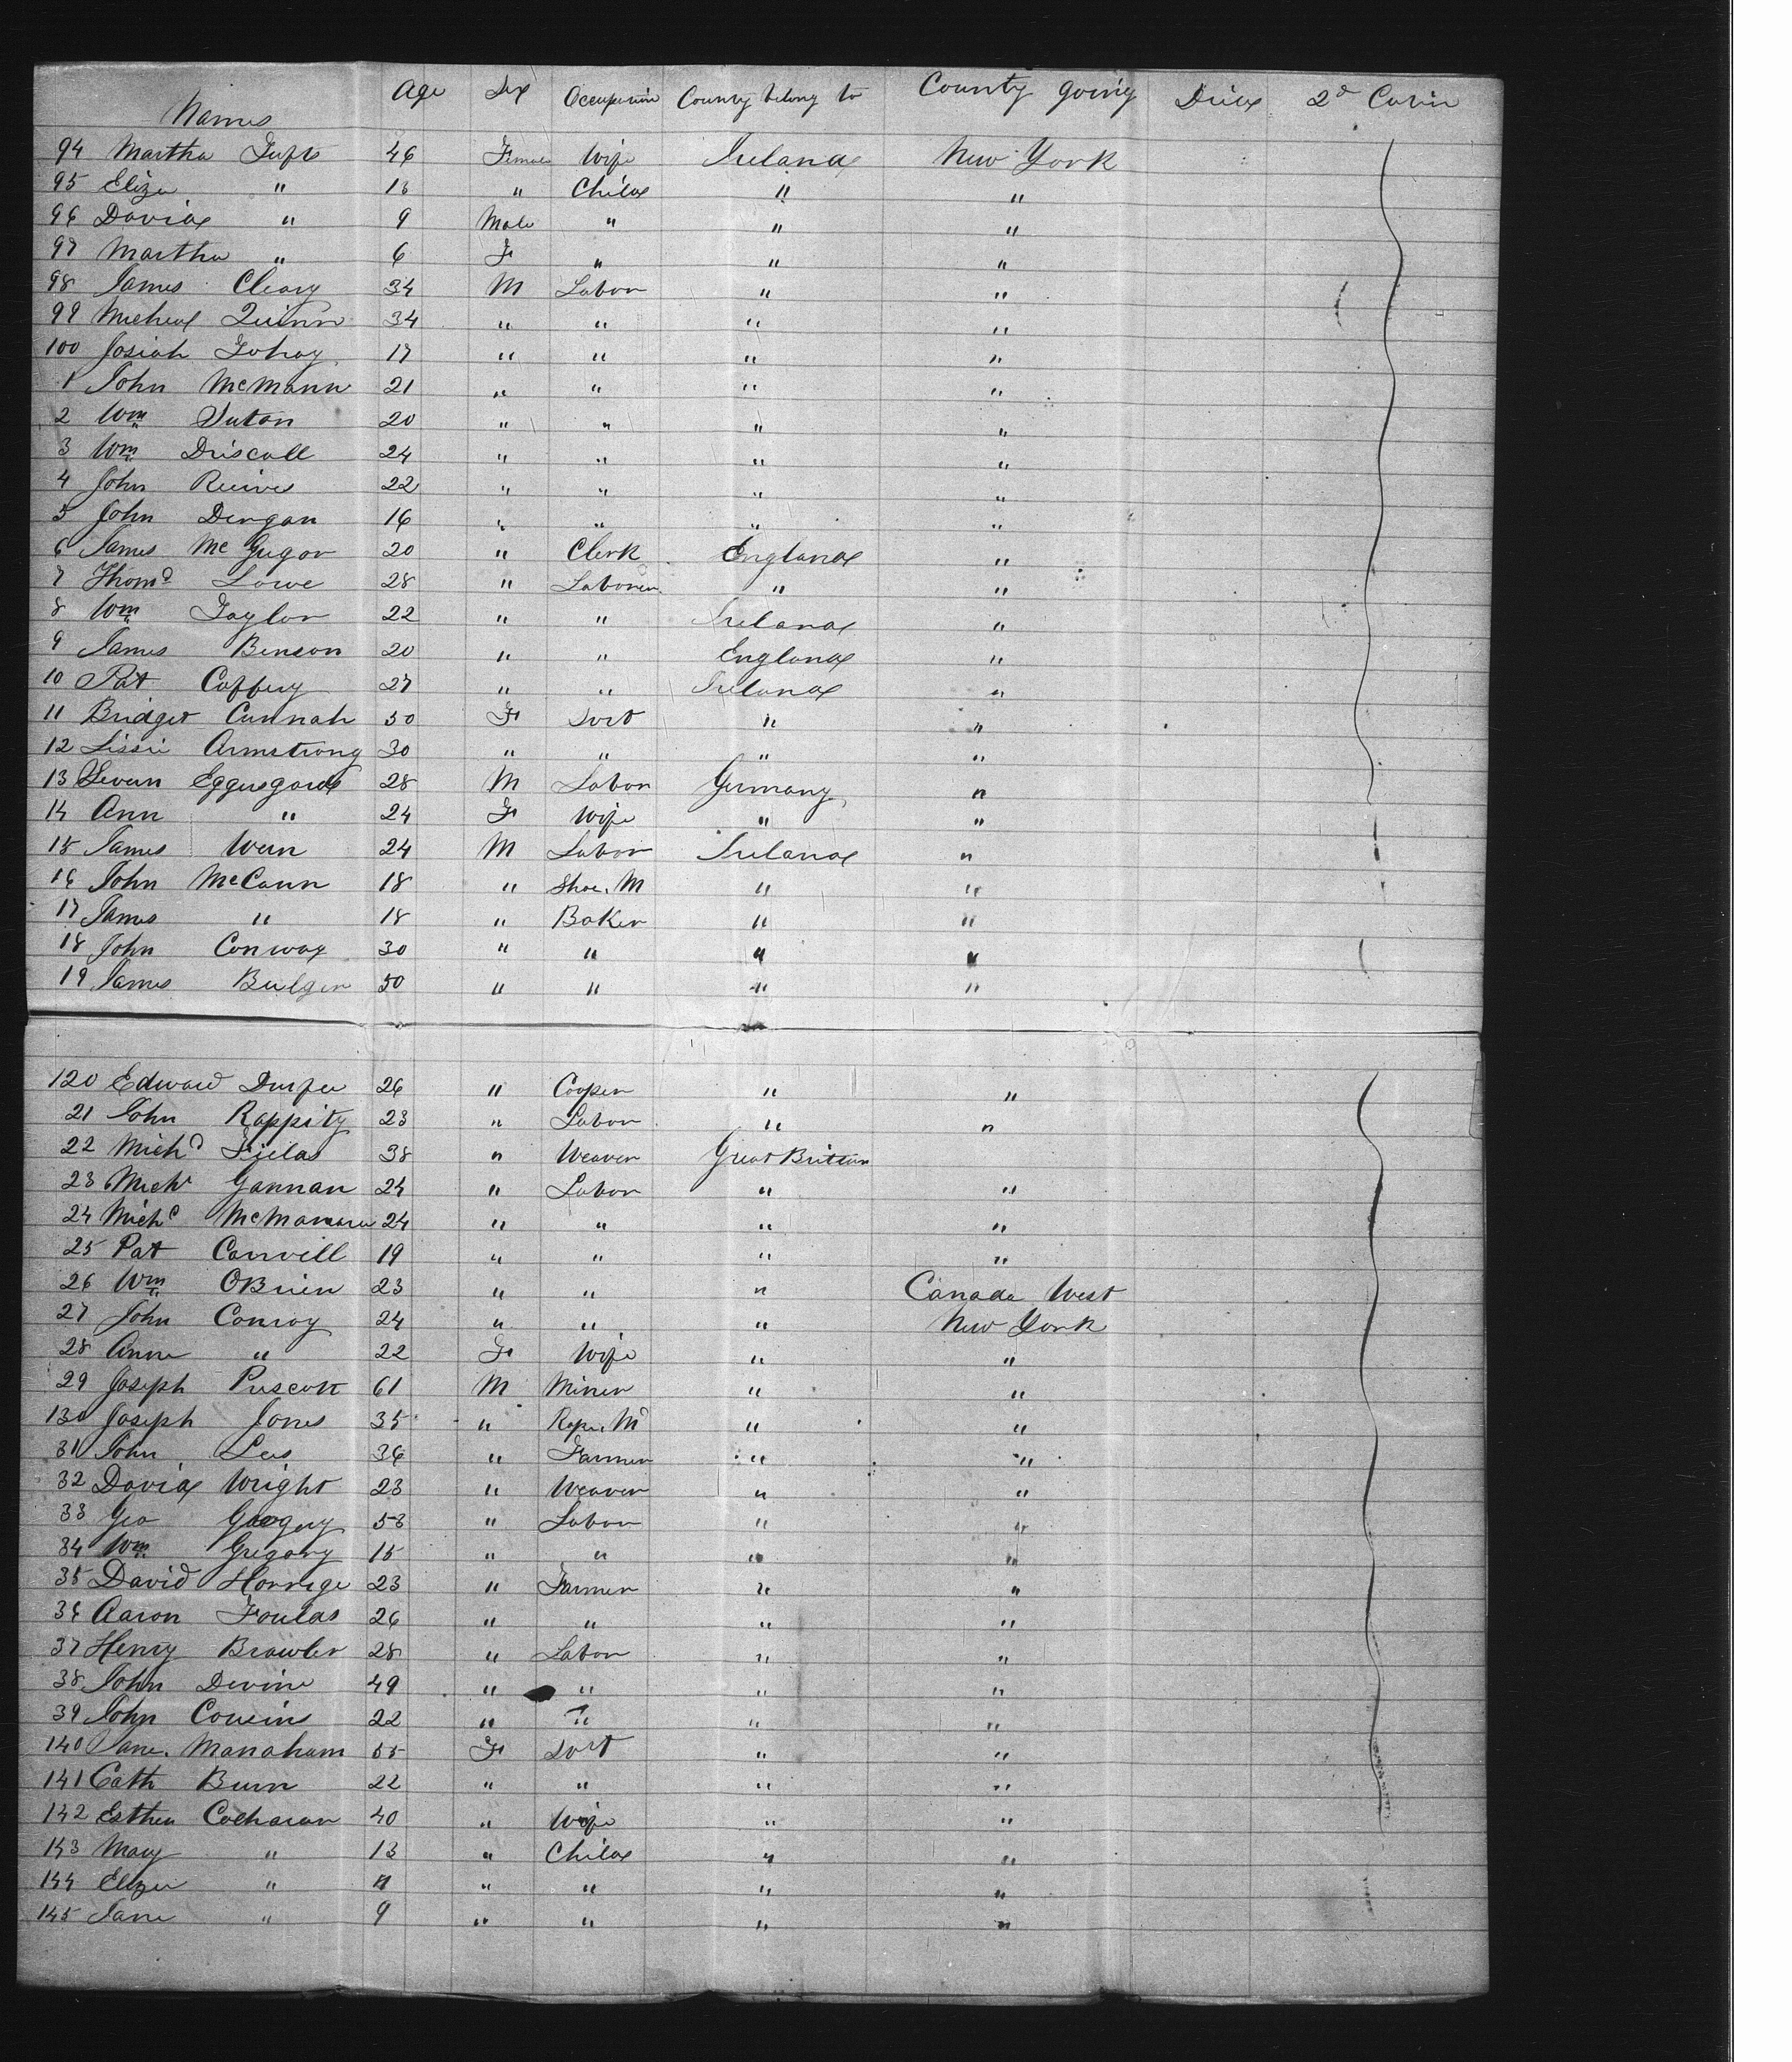 Names Age Sex Occupation County belong to County going Died 2d Cabin
94 Martha Tufts 46 Female Wife Ireland New York
95 Eliza " 13 " Child " "
96 David " 9 Male " " "
97 Martha " 6 F " " "
98 James Cleary 34 M Labor " "
99 Micheal Quinn 34 " " " "
100 Josiah 17 " " " "
1 John McMann 21 " " " "
2 Wm Suton 20 " " " "
3 Wm Driscoll 24 " " " "
4 John Reives 22 " " " "
5 John Dengan 16 " " " "
6 James McGregor 20 " Clerk England "
7 Thomd Lowe 28 " Laborer " "
8 Wm Taylor 22 " " Ireland "
9 James Benson 20 " " England "
10 Pat Caffery 27 " " Ireland "
11 Bridget Cunnah 50 F " "
12 Lissie Armstrong 30 " " " "
13 Eggersgard 28 M Labor Germany "
14 Ann " 24 F Wife " "
15 James 24 M Labor Ireland "
16 John McCann 18 " Shoe. M " "
17 James " 18 " Baker " "
18 John Conway 30 " " " "
19 James Bulger 50 " " " "
120 Edward Durfee 26 " Cooper " "
21 John Rappity 23 " Labor " "
22 Michd Fields 38 " Weaver Great Britian
23 Michl Gannan 24 " Labor " "
24 Michl McMamara 24 " " " "
25 Pat Canvill 19 " " " "
26 Wm OBrien 23 " " " Canada West
27 John Conroy 24 " " " New York
28 Anne " 22 F Wife " "
29 Joseph Prescott 61 M Miner " "
130 Joseph Jones 35 " Rope. M " "
31 John Lees 36 " Farmer " "
32 David Wright 23 " Weaver " "
33 Geo Gregory 53 " Labor " "
34 Wm Gregory 15 " " " "
35 David Horrige 23 " Farmer " "
36 Aaron Foulas 26 " " " "
37 Henry Brawler 28 " Labor " "
38 John Devine 49 " " " "
39 John Cousins 22 " " " "
140 Jane. Manaham 55 F " "
141 Cath Burn 22 " " " "
142 Esther Cochran 40 " Wife " "
143 Mary " 13 " Child " "
144 Eliza " " " " "
145 Jane " 9 " " " "